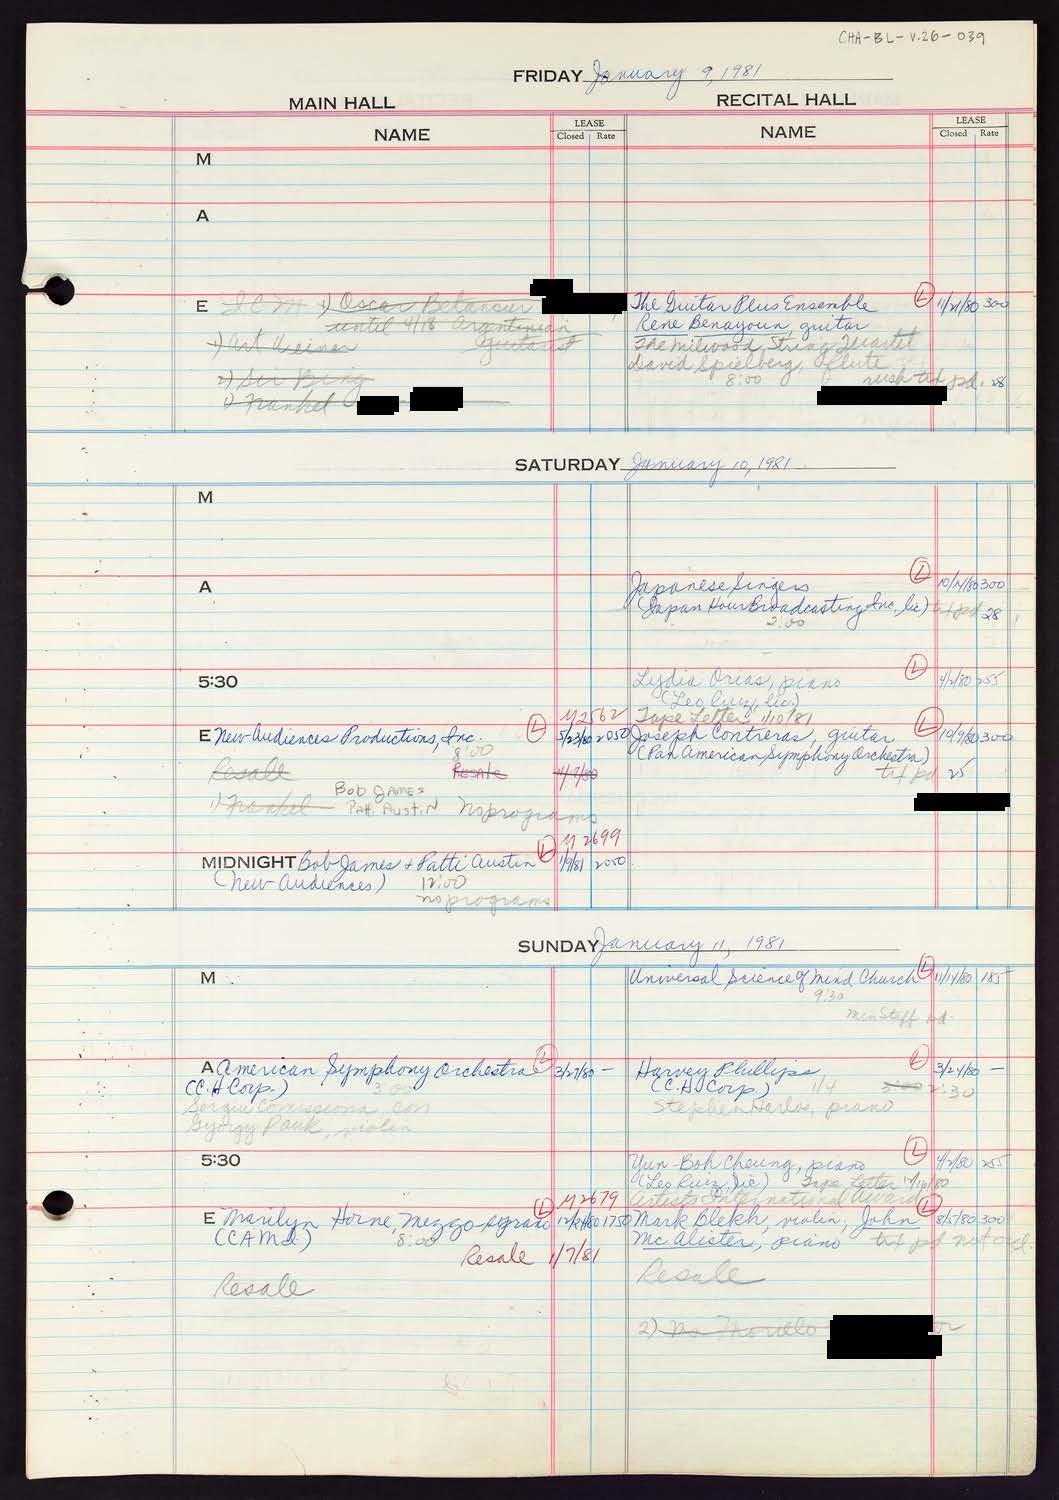 CHA-BL-V.26-039
FRIDAY January 9, 1981
MAIN HALL
RECITAL HALL
NAME
LEASE
Closed Rate
NAME
LEASE
Closed Rate
M
A
E ICM 1) Oscar Betancur
until 4/18 Argentinian
guitarist
Art Weiner
2) Sir Bing
1) Frankel
The Guitar Plus Ensemble L 11/21/80 300
Rene Benayoun, guitar
The Milwood String Quartet
David Spielberg, flute
8:00 rush txt pd. 28
SATURDAY January 10, 1981
M
A
Japanese Singers L 10/14/80 300
(Japan Hour Broadcasting Inc., lic) txt pd 28
2:00
5:30
Lydia Orias, piano L 4/2/80 255
(Leo Ruiz, lic.)
Tape Letter 1/10/81
M2562
E New Audiences Productions, Inc. L 5/23/80 2050
8:00
Resale Resale 4/9/80
1) Frankel
Bob James
Patti Austin
No programs
Joseph Contreras, guitar L 10/9/80 300
(Pan American Symphony Orchestra)
txt pd 25
M2699
MIDNIGHT Bob James + Patti Austin L 1/9/81 2050
(New Audiences) 12:00
no programs
SUNDAY January 11, 1981
M
Universal Science of Mind Church L 11/14/80 185
9:30
min staff pd.
A American Symphony Orchestra L 3/27/80 —
(C.H. Corp.) 3:00
Sergiu Comissiona, con
György Pauk, violin
Harvey Phillips L 3/24/80 —
(C.H. Corp.) 1/4 2:30
Stephen Harlos, piano
5:30
Yun-Boh Cheung, piano L 4/2/80 255
(Leo Ruiz, lic) Tape Letter
Artists International Award
M2679
E Marilyn Horne, mezzo soprano L 1750
(CAMI) 8:00
Resale 1/7/81
Resale
Mark Blekh, violin, John L 8/5/80 300
McAlister, piano txt pd not ord.
Resale
2)